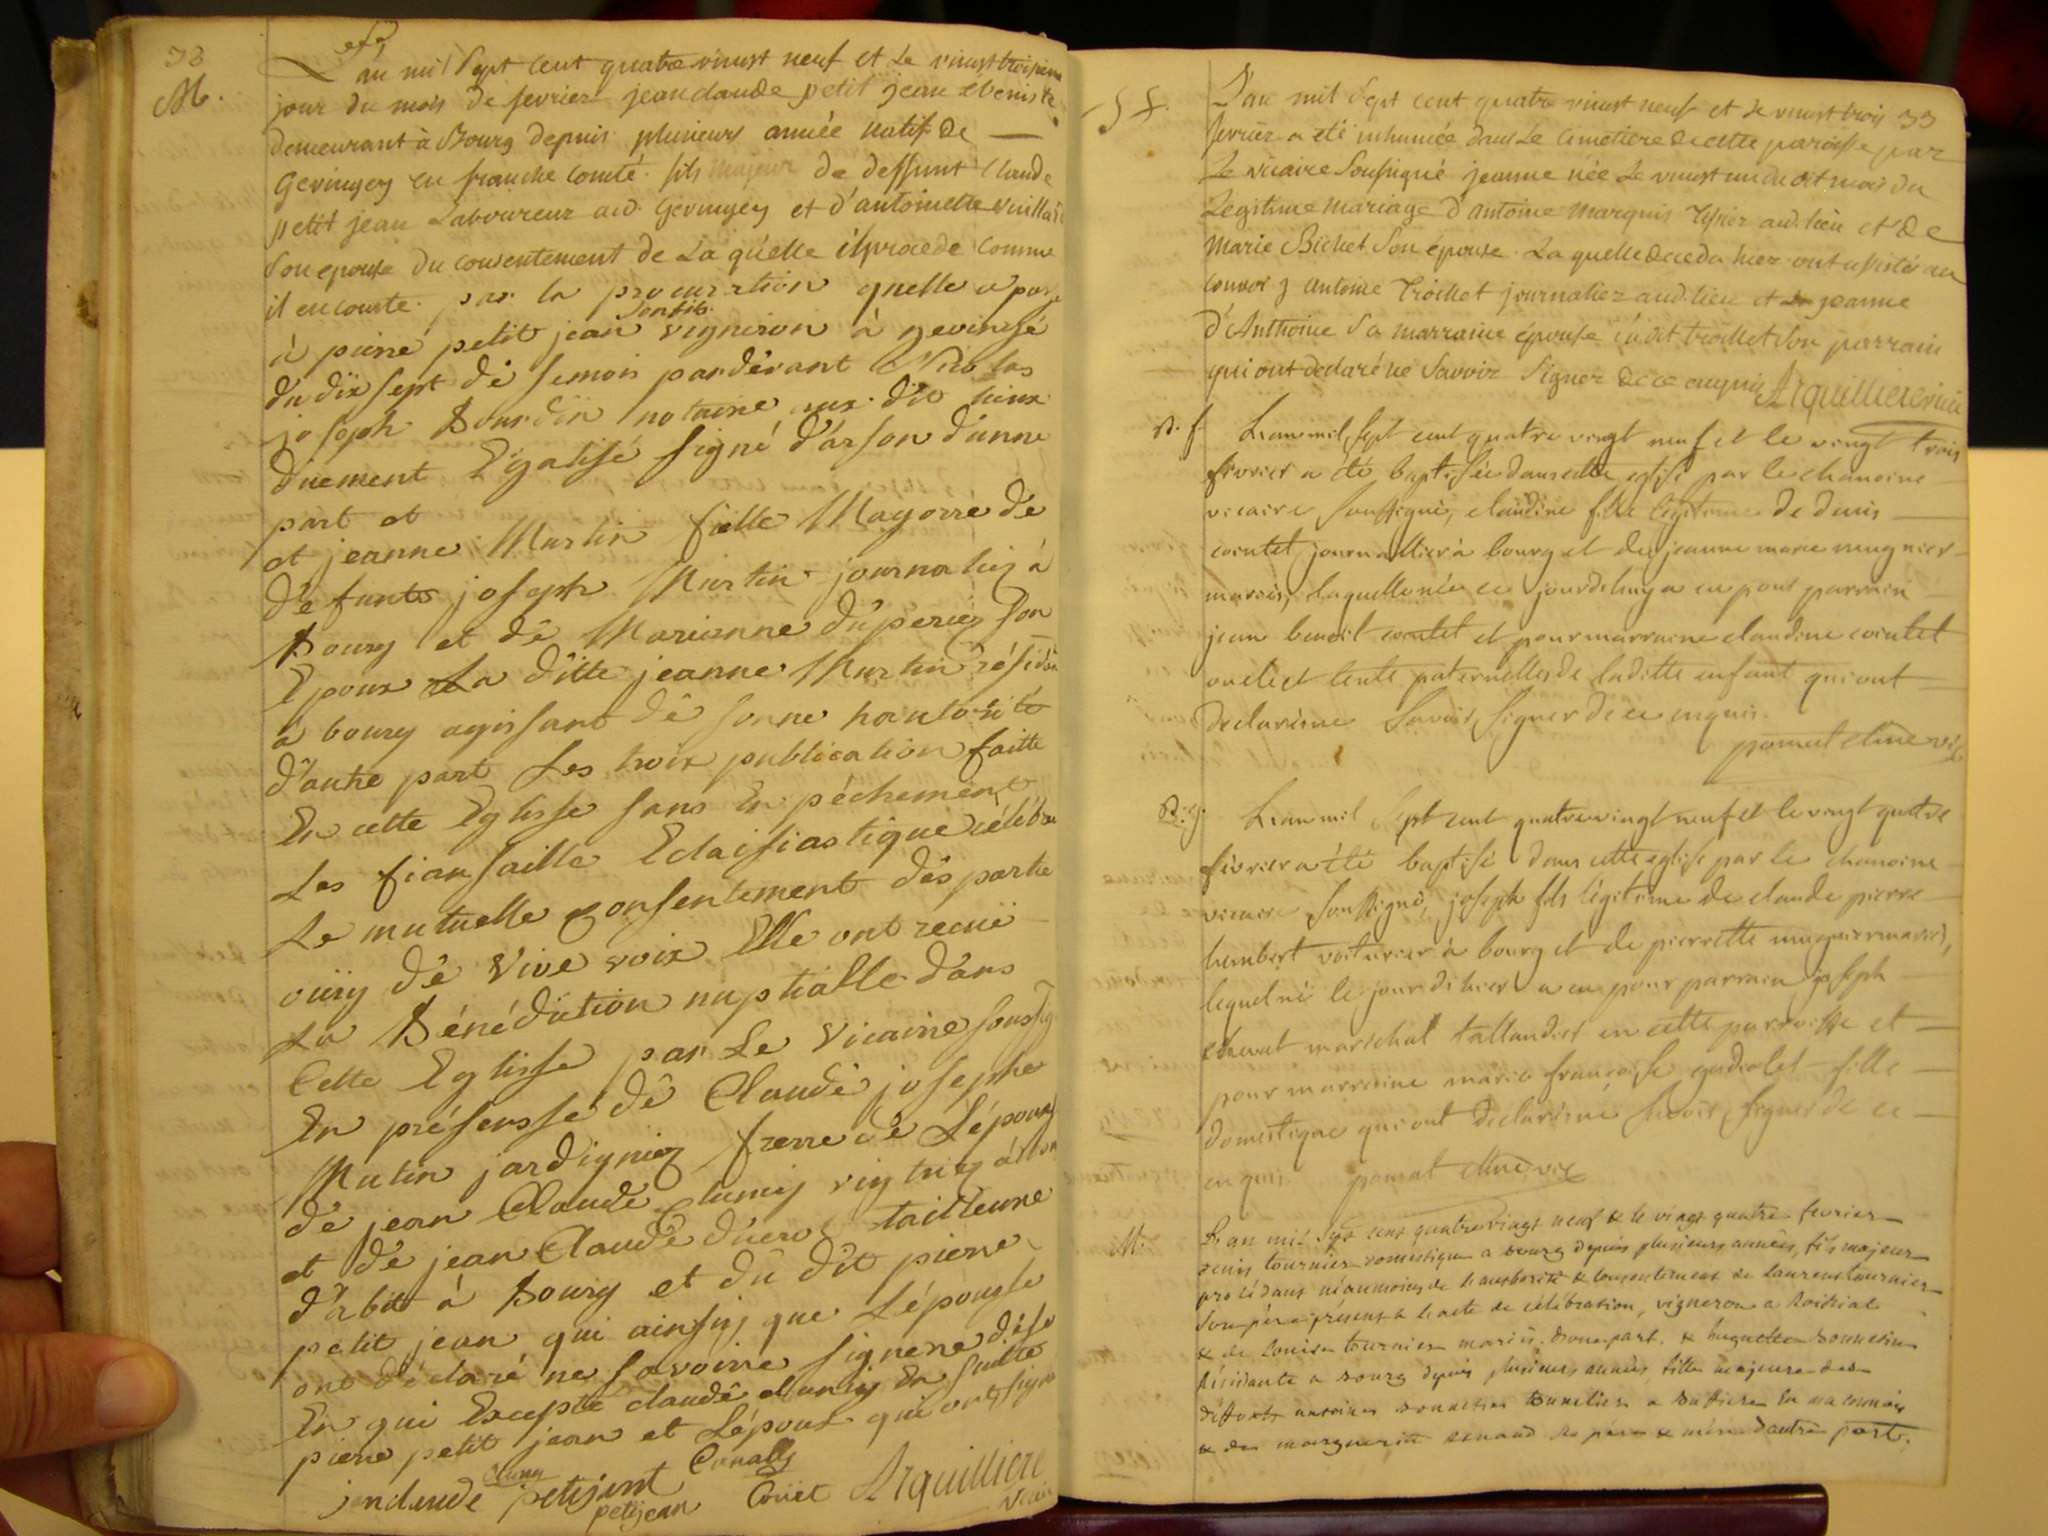 38
M.
L'an mil sept cent quatre vinst neuf et Le vinst troisieme
jour du mois de fevrier jean claude petit jean ebeniste
demeurant à Bourg depuis plusieurs année natif de
Gevingey en franche comté fils majeur de deffunt Claude
petit jean Laboureur aud. Gevingey et d'antoinette vuillard
son epouse du consentement de La quelle il procede comme
il en conste par la procurations quelle a passe
à pierre petit jean son fils vigniron à
du dix sept de se mois pardevant Nicolas
joseph Bourdin notaire aux dit lieux
duement Egalisé signé d'arson d'unne
part et
et jeanne Martin fielle Mayorre de
defunts joseph Martin journaliez à
Bourg et de Marianne duperiez son
Epoux La ditte jeanne Martin
à bourg agissant de sonne hautorité
d'autre part Les troix publication faitte
En cette Eglisse sans En pechement
Les fiansaille célébré
Le mutuelle consentement des partie
oüiy de vive voix Elle ont recuë
La Bénédiction nuptialle dans
Cette Eglisse par Le vicairie
En présensse de Claude josephe
Matin jardigniez frerre de L'épouse
de jean Claude
et de jean Claude tailleure
d'abit à Bourg et du dit pierre
petit jean qui ainssy que L'épousse
ont déclaré ne savoire signere
En qui Excepte claude En suitte
pierre petit jean et L'époux qui ont signé
janclaude petijant
petijean Couet Arquilliere
vicaire
33
L'an mil sept cent quatre vinst neuf et Le vinst trois
fevrier a eté inhumée dans Le cimetiere de cette paroisse par
Le vicaire soussigné jeanne née Le vinst un du dit mois du
Legitime mariage d'antoine marquis aud. lieu et de
Marie Bichet son épouse. La quelle deceda hier ont assistés au
convoi antoine Triollet journalier aud. lieu et jeanne
d'Anthoine sa marraine épouse Triollet son parrain
qui ont declaré ne savoir signer de ce enquis Arquilliere vicaire
B. f.
L'an mil sept cent quatre vingt neuf et le vingt trois
fevrier a été baptisée dans cette eglise par le chanoine
vicaire soussigné, claudine fille legitime de denis
cointet journallier à bourg et de jeanne marie mugnier
mariés, laquelle née ce jourdehuy a eu pour parrain
jean benoit cointet et pour marraine claudine cointet
oncle et tente paternelles de laditte enfant qui ont
declaré ne savoir signer de ce enquis.
B. g.
L'an mil sept cent quatre vingt neuf et le vingt quatre
fevrier a été baptisé dans cette eglise par le chanoine
vicaire soussigné, joseph fils légitime de claude pierre
humbert voiturier à bourg et de pierrette mugnier mariés,
lequel né le jour d'hier a eu pour parrain joseph
marechal tallandier en cette parroisse et
pour marraine marie françoise fille
domestique qui ont declaré ne savoir signer de ce
enquis.
M.
L'an mil sept cent quatre vingt neuf & le vingt quatre fevrier
denis tournier domestique a bourg depuis plusieurs années, fils majeur
procédant néanmoins de l'authorité & consentement de Laurent tournier
son père présent à l'acte de célébration, vigneron a
& de Louise tournier mariés d'une part. & huguette
résidante a bourg depuis plusieurs années, fille majeure des
défunts antoine tonnelier a en maconnois
& de marguerite renaud ses père & mère d'autre part.